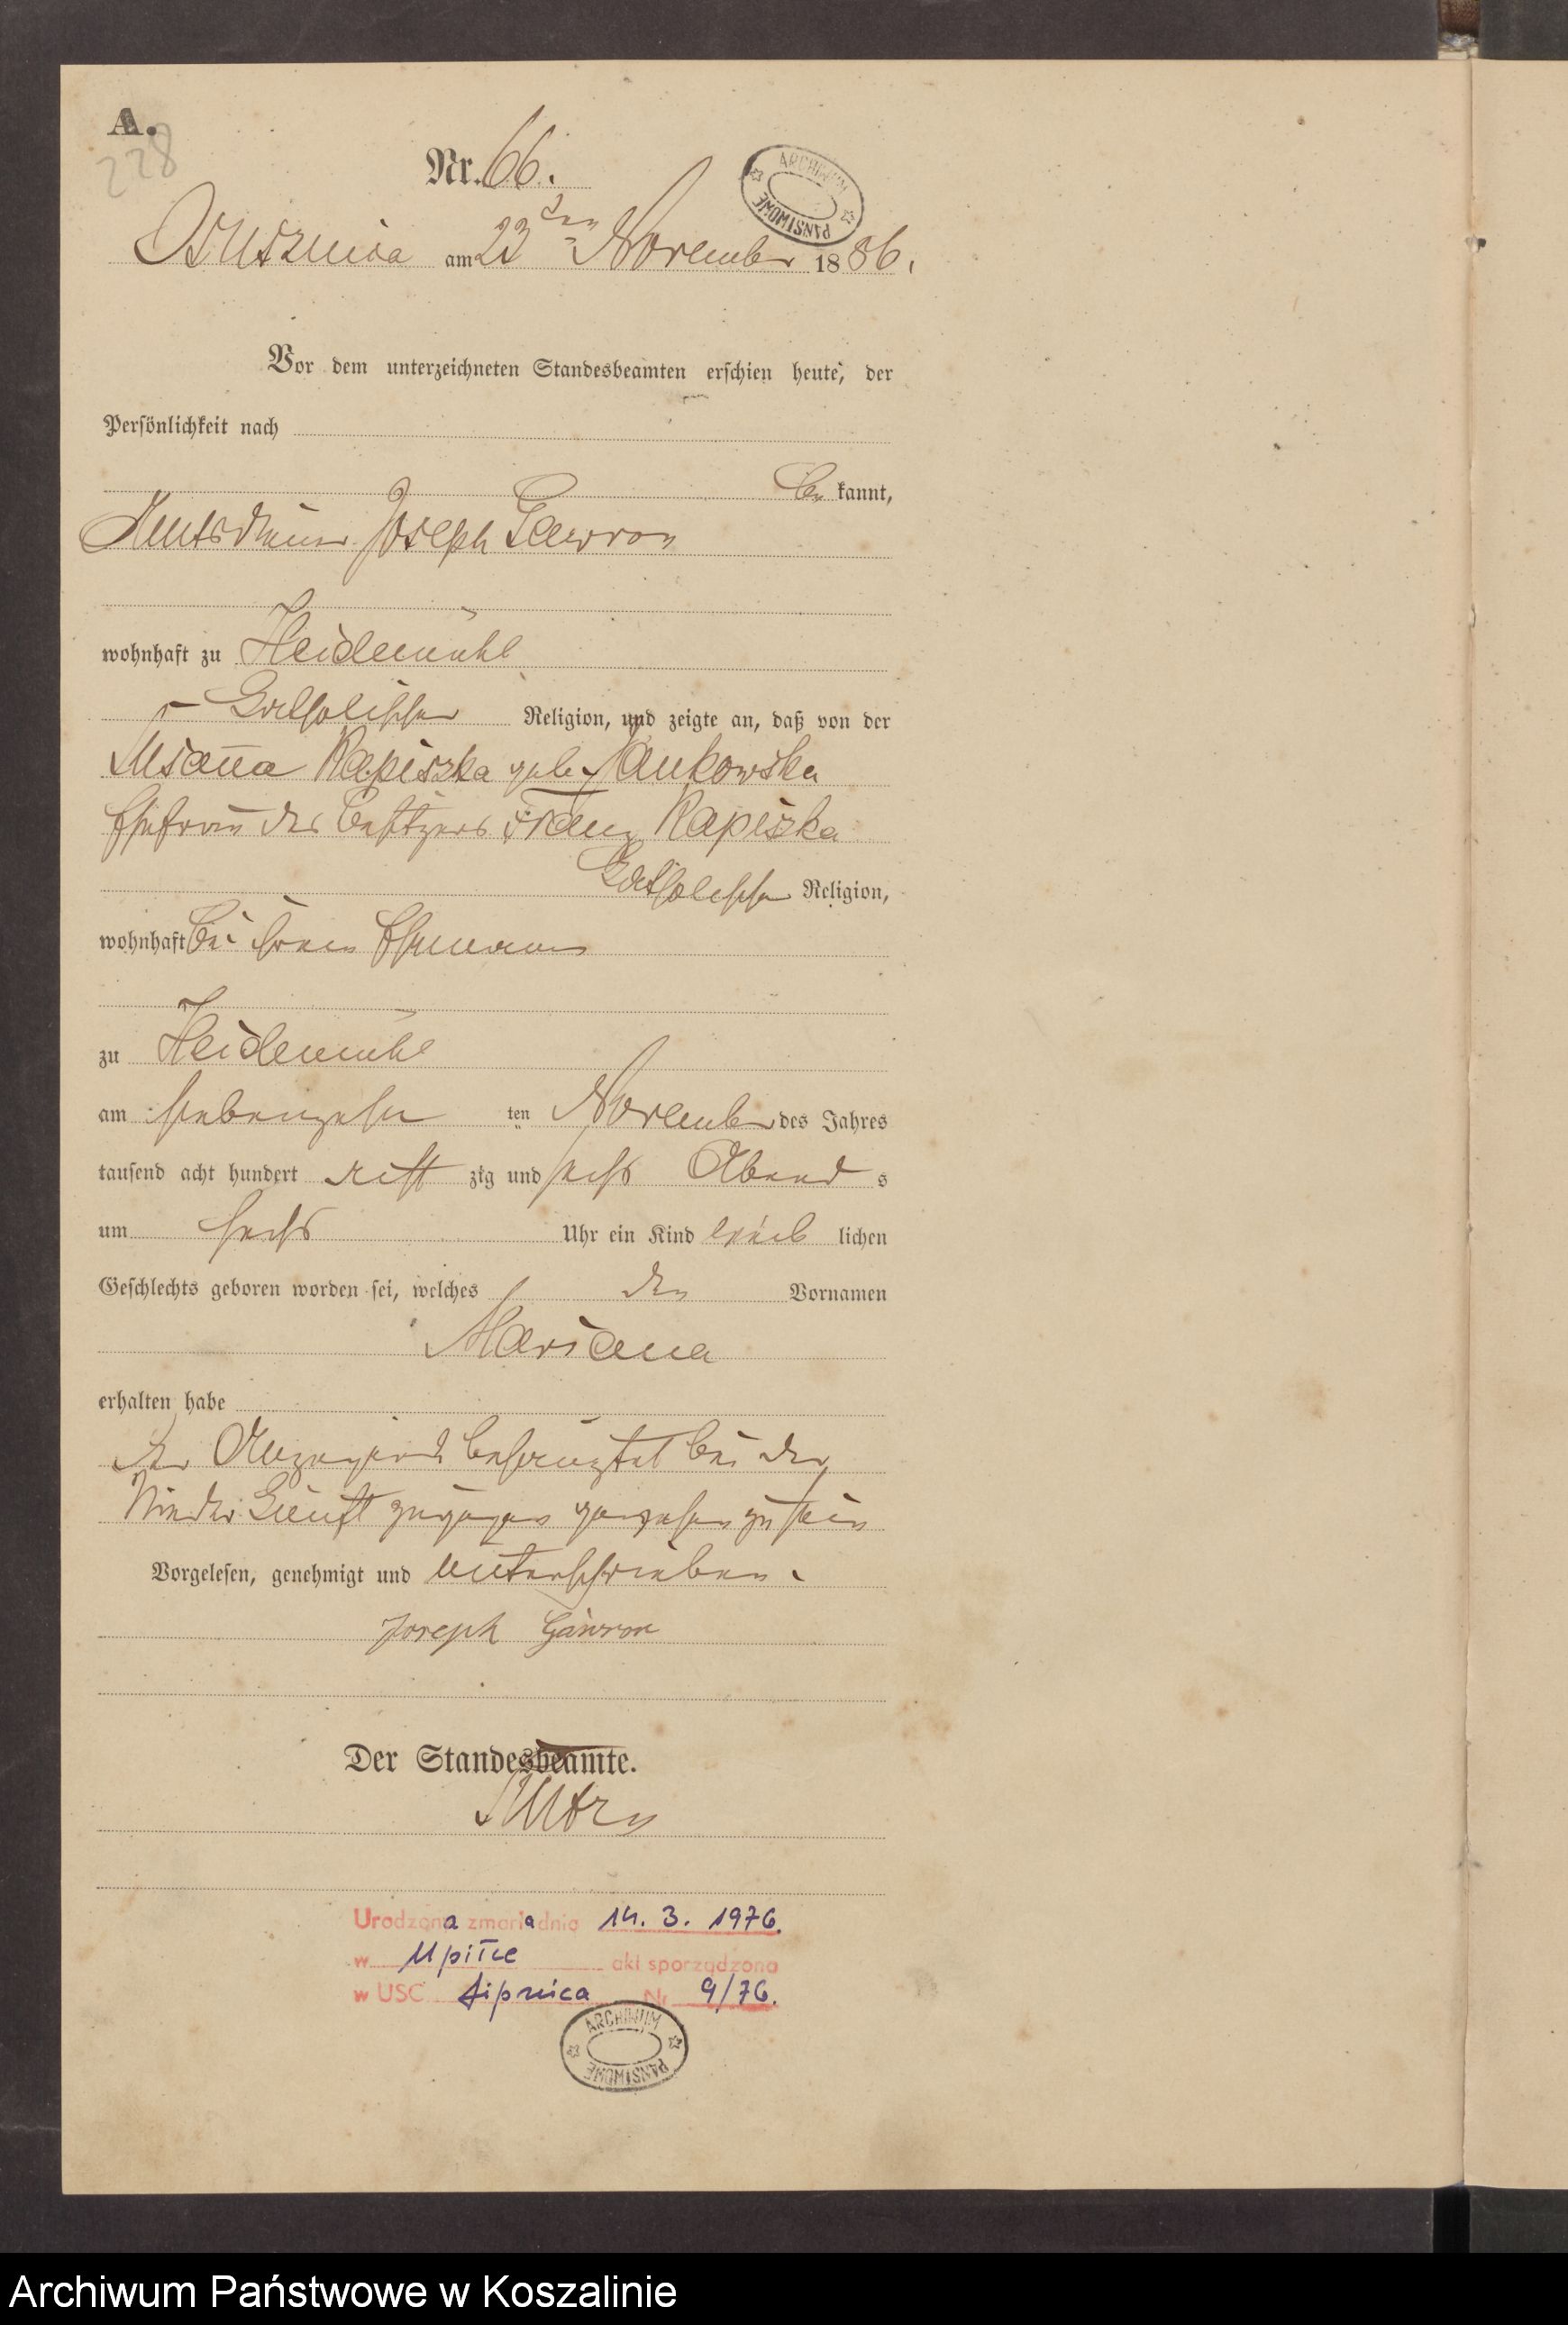 A.
228
Nr. 66.
ARCHIWUM PAŃSTWOWE
am 23ten November 1886.
Vor dem unterzeichneten Standesbeamten erschien heute, der
Persönlichkeit nach
be kannt,
Amtsdiener Joseph Gawron
wohnhaft zu Heidemühl
katholischer Religion, und zeigte an, daß von der
Rapiszka geb. Jankowska
Ehefrau des Besitzers Franz Rapiszka
katholischer Religion,
wohnhaft bei ihrem Ehemann
zu Heidemühl
am siebenzehn ten November des Jahres
tausend acht hundert acht zig und sechs Abend s
um sechs Uhr ein Kind weib lichen
Geschlechts geboren worden sei, welches den Vornamen
Mariana
erhalten habe
der Anzeigende bei der
Niederkunft zugegen gewesen zu sein
Vorgelesen, genehmigt und unterschrieben.
Joseph Gawron
Der Standesbeamte.
Urodzona zmarła dnia 14. 3. 1976.
w Upiłce akt sporządzono
w USC Lipnica Nr 9/76.
ARCHIWUM PAŃSTWOWE
Archiwum Państwowe w Koszalinie